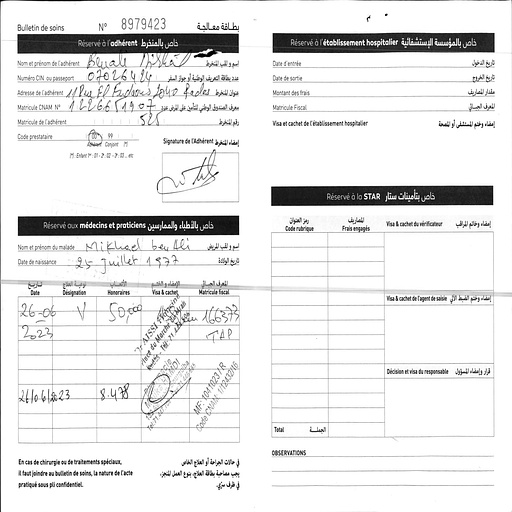 Bulletin de soins N° 8979423 بطاقة معالجة
Réservé à l'adhérent خاص بالمنخرط
Nom et prénom de l'adhérent
Numéro CIN ou passeport 07026424 عدد بطاقة التعريف الوطنية أو جواز السفر
Adresse de l'adhérent عنوان المنخرط
Matricule CNAM N° 1226651907
Matricule de l'adhérent 525 رقم المنخرط
Code prestataire 00 99
Adhérent Conjoint M
M : Enfant 1er : 01 - 2: 02 - 3: 03 ... etc
Signature de l'Adhérent إمضاء المنخرط
Réservé aux médecins et praticiens خاص بالأطباء والممارسين
Nom et prénom du malade Mikhael ben Ali إسم و لقب المريض
Date de naissance 25 juillet 1977 تاريخ الولادة
تاريخ
Date Désignation Honoraires Visa & cachet Matricule fiscal
26-06 V 50,000 166373
2023 TAP
26/06/2023 8.478
MF: 1041023/R
Code CNAM:
En cas de chirurgie ou de traitements spéciaux,
il faut joindre au bulletin de soins, la nature de l'acte
pratiqué sous pli confidentiel.
في حالات الجراحة أو العلاج الخاص
يجب مصاحبة بطاقة العلاج، بنوع العمل المنجز،
في ظرف سري.
Réservé à l'établissement hospitalier خاص بالمؤسسة الإستشفائية
Date d'entrée تاريخ الدخول
Date de sortie تاريخ الخروج
Montant des frais مقدار المصاريف
Matricule Fiscal المعرف الجبائي
Visa et cachet de l'établissement hospitalier إمضاء وختم المستشفى أو المصحة
Réservé à la STAR خاص بتأمينات ستار
رمز العنوان المصاريف
Code rubrique Frais engagés
Visa & cachet du vérificateur إمضاء وخاتم المراقب
Visa & cachet de l'agent de saisie
Décision et visa du responsable قرار وإمضاء المسؤول
Total الجملة
OBSERVATIONS